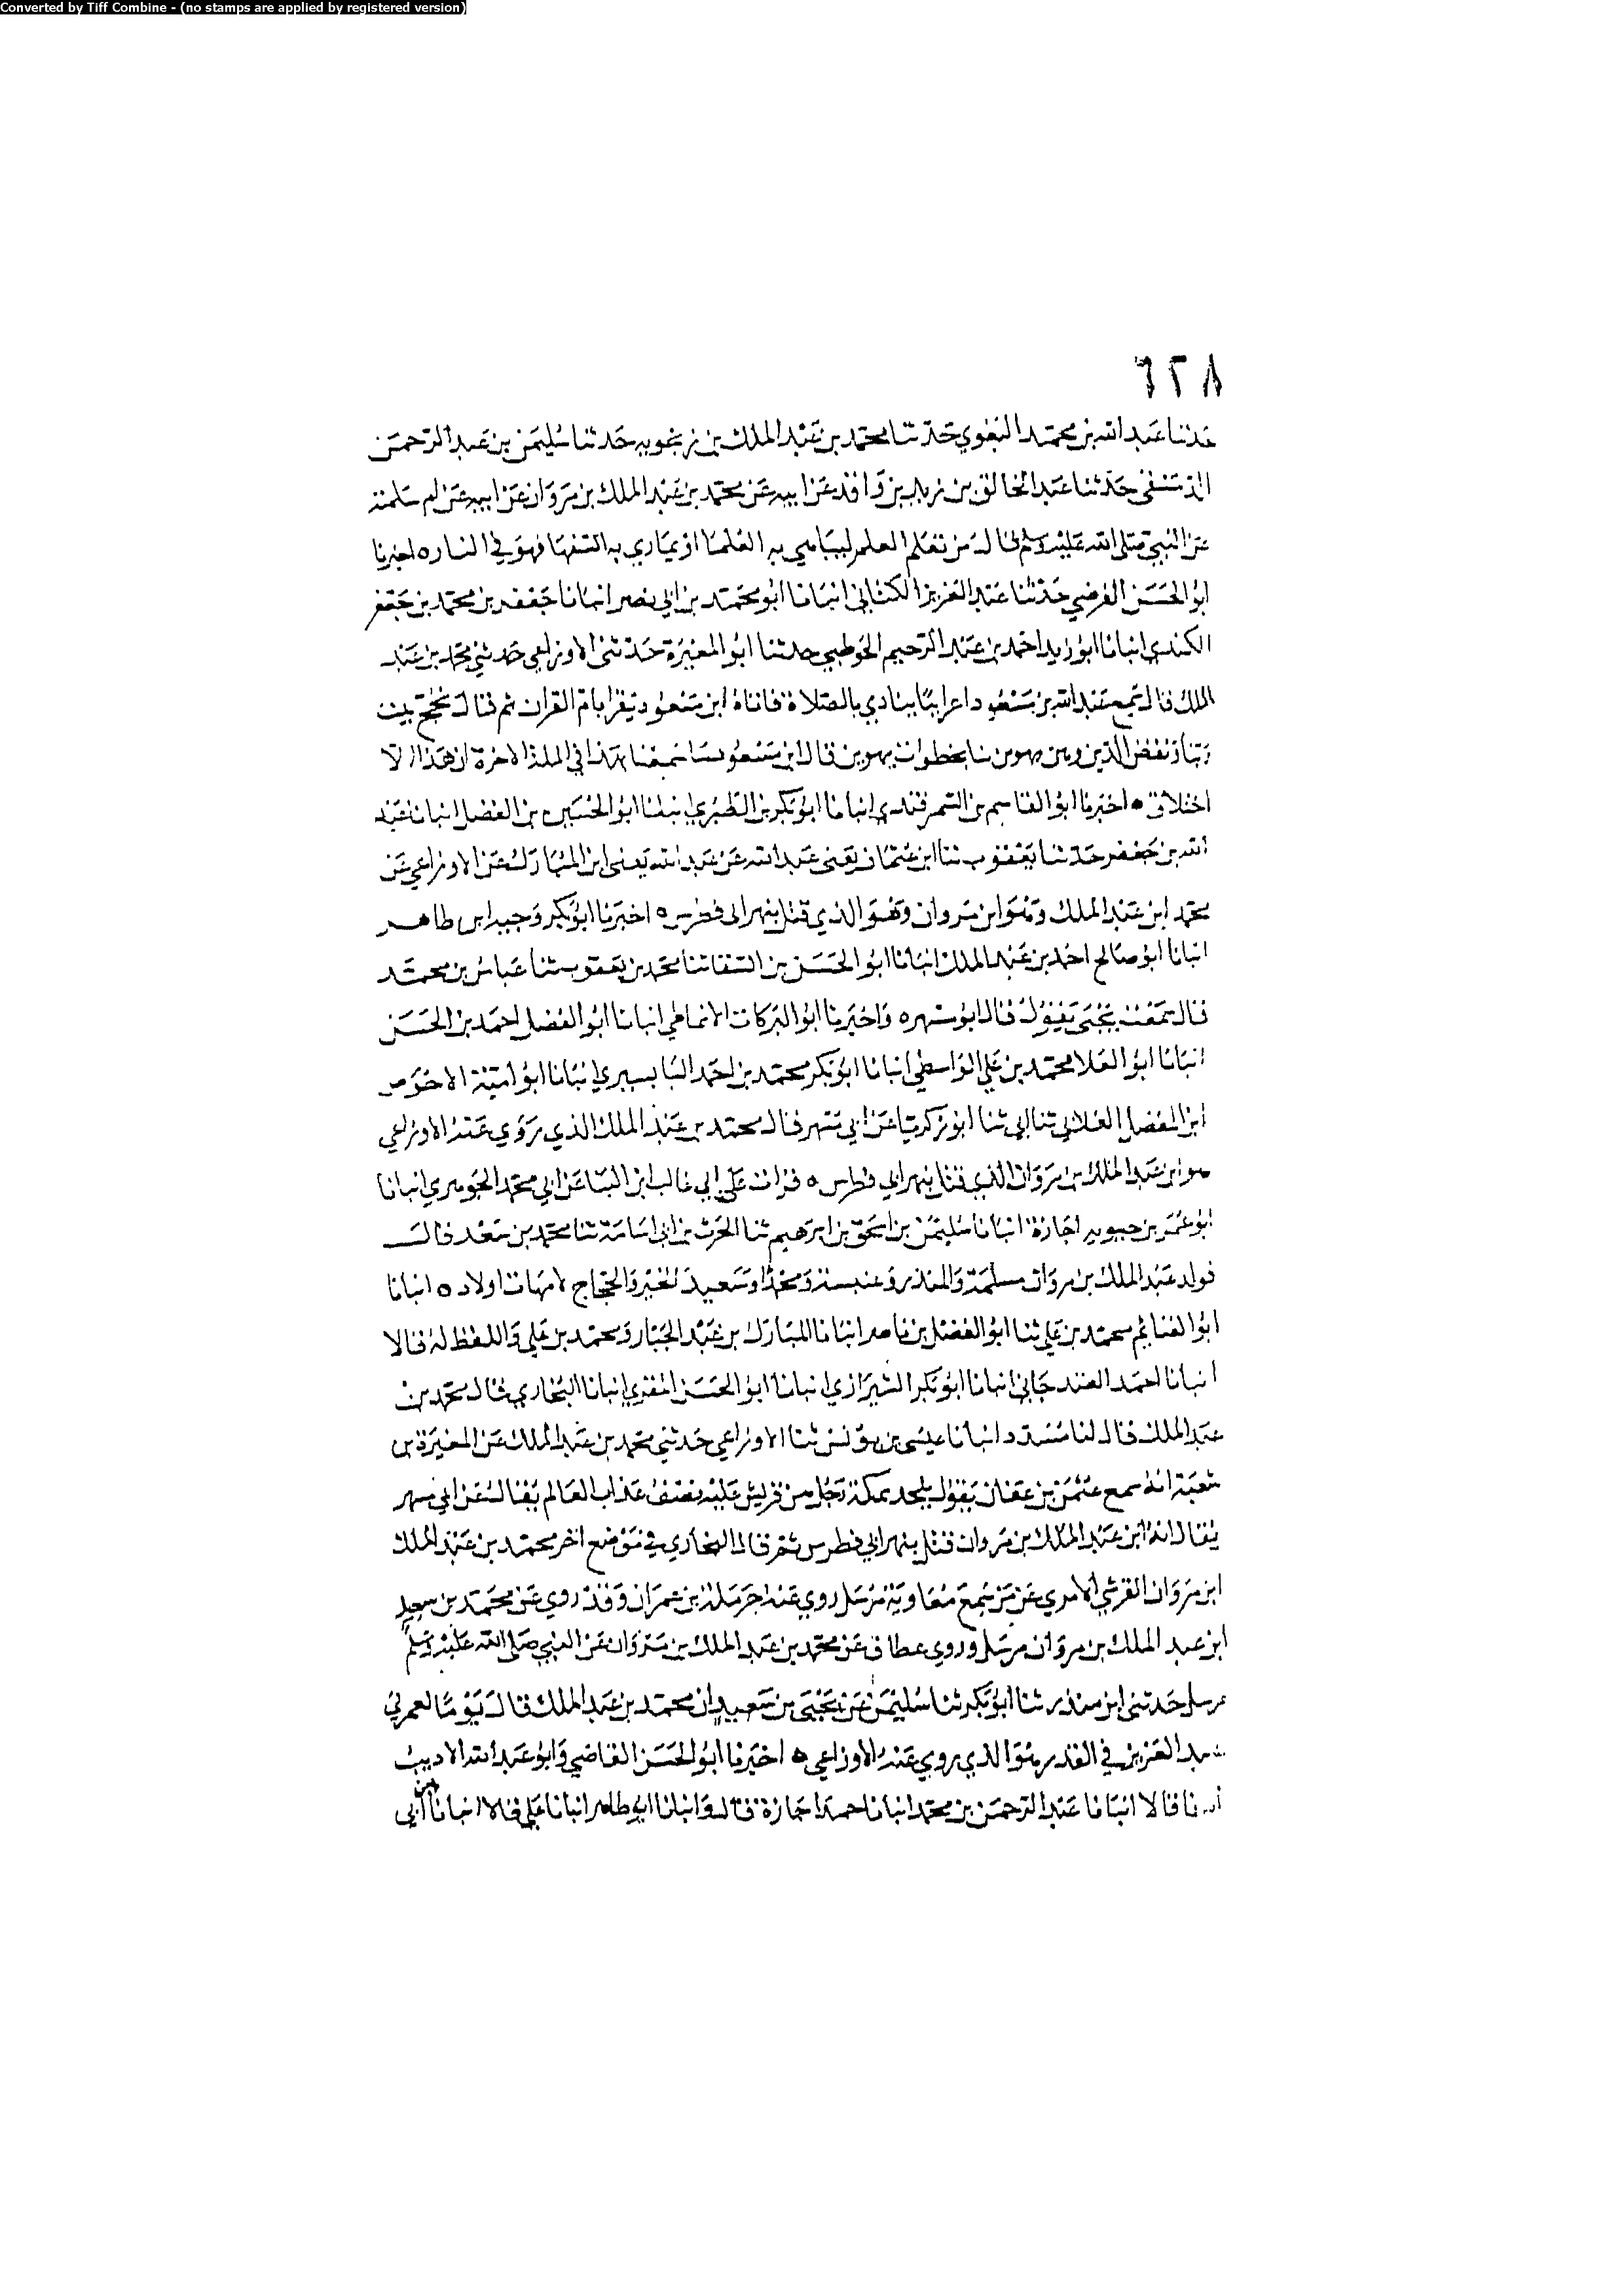 Converted by Tiff Combine - (no stamps are applied by registered version)
٦٢٨
حدثنا عبد الله بن محمد البغوي حدثنا محمد بن عبد الملك بن زنجويه حدثنا سليمن بن عبد الرحمن
الدمشقي حدثنا عبد الخالق بن زيد بن واقد عن ابيه عن محمد بن عبد الملك بن مروان عن ابيه عن ام سلمة
عن النبي صلى الله عليه وسلم قال من تعلم العلم ليباهي به العلما او يماري به السفها فهو في النار ه اخبرنا
ابو الحسن الفرضي حدثنا عبد العزيز الكتاني انبانا ابو محمد بن ابي نصر انبانا جعفر بن محمد بن جعفر
الكندي انبانا ابو زيد احمد بن عبد الرحيم الحوطي حدثنا ابو المغيرة حدثني الاوزاعي حدثني محمد بن عبد
الملك قال سمع عبد الله بن مسعود اعرابيا ينادي بالصلاة فاتاه ابن مسعود يقرا بام القران ثم قال نحج بيت
ربنا ونقض الدين وهن يهوين بنا بخطوات يهوين قال ابن مسعود ما سمعنا بهذا في الملة الاخرة ان هذا الا
اختلاق ه اخبرنا ابو القاسم بن السمرقندي انبانا ابو بكر بن الطبري انبانا ابو الحسين بن الفضل انبانا عبد
الله بن جعفر حدثنا يعقوب ثنا ابن عثمان يعني عبد الله عن عبد الله يعني ابن المبارك عن الاوزاعي عن
محمد ابن عبد الملك وهو ابن مروان وهو الذي قتل بنهر ابي فطرس ه اخبرنا ابو بكر وجيه ابن طاهر
انبانا ابو صالح احمد بن عبد الملك انبانا ابو الحسن بن السقا ثنا محمد بن يعقوب ثنا عباس بن محمد
قال سمعت يحيى يقول قال ابو مسهر ه واخبرنا ابو البركات الانماطي انبانا ابو الفضل احمد بن الحسن
انبانا ابو العلا محمد بن علي الواسطي انبانا ابو بكر محمد بن احمد البابسيري انبانا ابو امية الاحوص
ابن المفضل الغلابي ثنا ابي ثنا ابو زكريا عن ابي مسهر قال محمد بن عبد الملك الذي روى عنه الاوزاعي
هو ابن عبد الملك بن مروان الذي قتل بنهر ابي فطرس ه قرات على ابي غالب ابن البنا عن ابي محمد الجوهري انبانا
ابو عمر بن حيويه اجازة انبانا سليمن بن اسحق بن ابرهيم ثنا الحرث بن ابي اسامة ثنا محمد بن سعد قال
فولد عبد الملك بن مروان مسلمة والمنذر وعنبسة ومحمدا وسعيد الخير والحجاج لامهات اولاد ه انبانا
ابو الغنايم محمد بن علي ثنا ابو الفضل بن ناصر انبانا المبارك بن عبد الجبار ومحمد بن علي واللفظ له قالا
انبانا احمد الغندجاني انبانا ابو بكر الشيرازي انبانا ابو الحسن المقري انبانا البخاري قال محمد بن
عبد الملك قال لنا مسدد انبانا عيسى بن يونس ثنا الاوزاعي حدثني محمد بن عبد الملك عن المغيرة بن
شعبة انه سمع عثمن بن عفان يقول يلحد بمكة رجل من قريش عليه نصف عذاب العالم يقال عن ابي مسهر
يقال انه ابن عبد الملك بن مروان قتل بنهر ابي فطرس ثم قال البخاري في موضع اخر محمد بن عبد الملك
ابن مروان القرشي الاموي عن من سمع معاوية مرسل روى عنه حرملة بن عمران وقد روي عن محمد بن سعيد
ابن عبد الملك بن مروان مرسل وروى عطاف عن محمد بن عبد الملك بن مروان عن النبي صلى الله عليه وسلم
مرسل حدثني ابن منذر ثنا ابو بكر ثنا سليمن عن يحيى بن سعيد ان محمد بن عبد الملك قال يوما لعمر بن
عبد العزيز في القدر هو الذي يروي عنه الاوزاعي ه اخبرنا ابو الحسن القاضي وابو عبد الله الاديب
قالا انبانا عبد الرحمن بن محمد انبانا احمد اجازة قال وانبانا ابو طاهر انبانا علي قالا انبانا ابن ابي